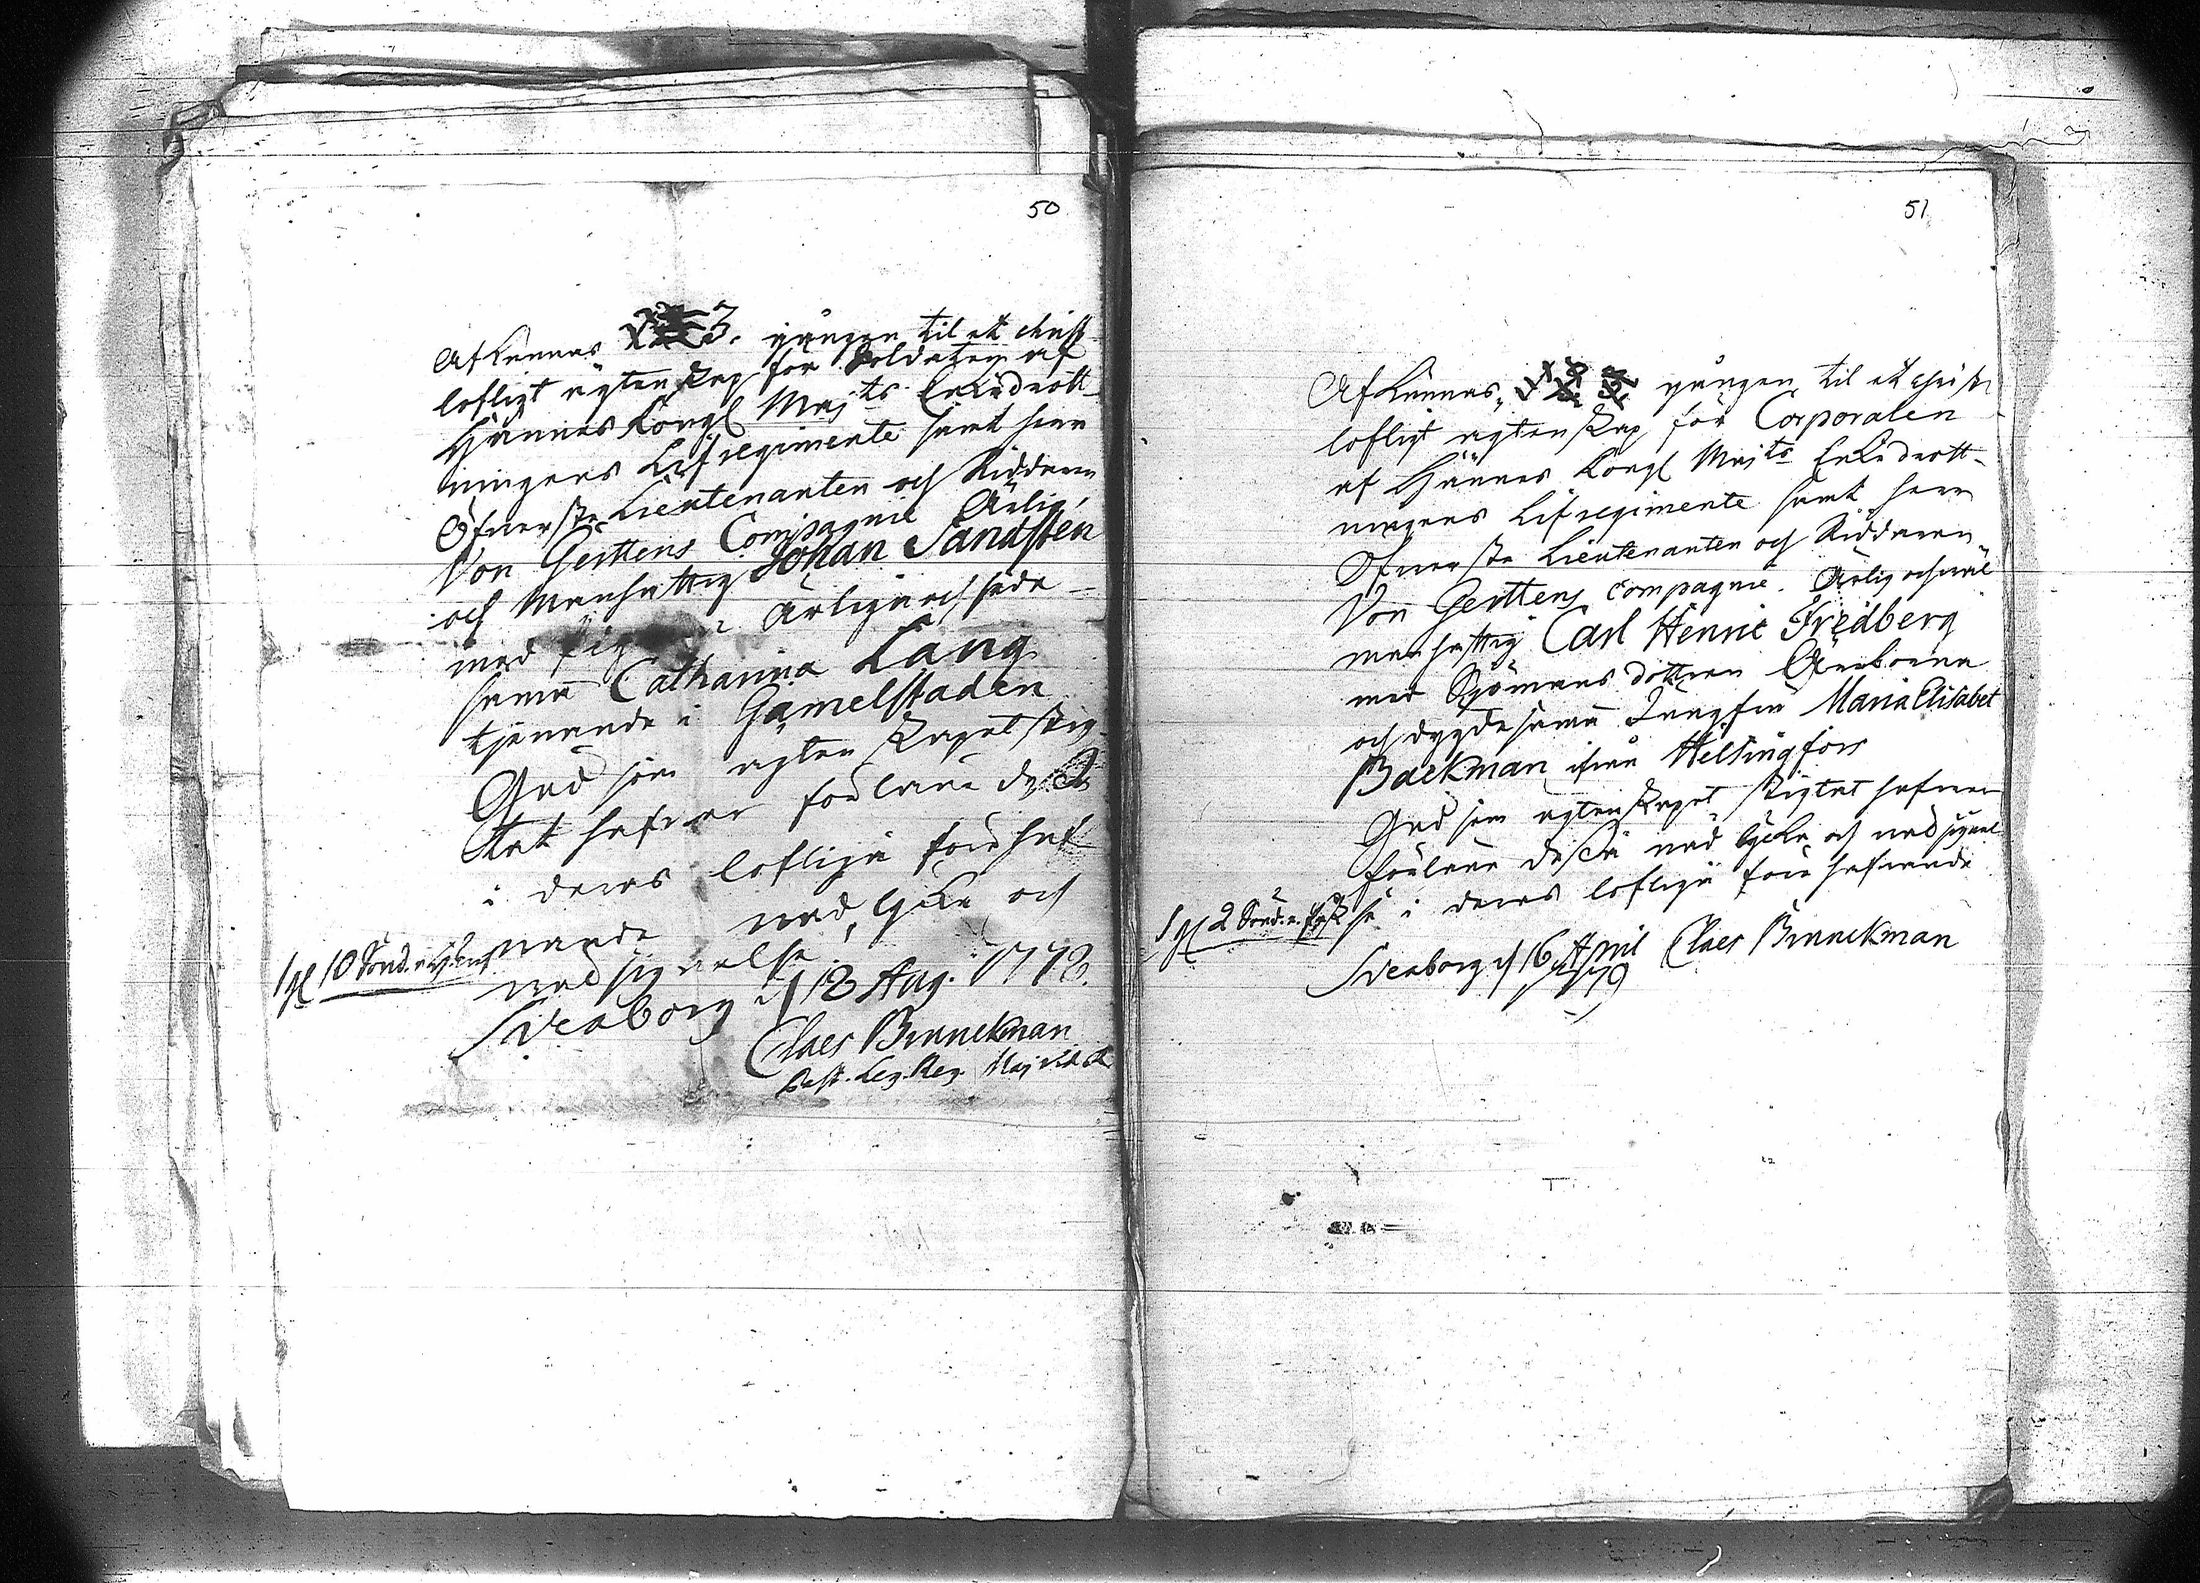 50
Aflÿnnes 3. gången til ett christ
lofligt ägtenskap för Soldaten af
Hännes Kongl Maj:ts Enkiedrott-
ningens Lifregimente samt herr
Öfverste Lieutenanten och Riddaren
Von Gerttens Compagnie Ärlig
och Manhaftig Johan Sandsten
med Pig Ärliga och sede-
sama Catharina Lång
tjenande i Gamelstaden
Gud som ägtenskapet stig
tat hafver förläne dessa
i deras lofliga förehaf
vande nåd, lycka och
välsignelse
1 gg 10 Sönd.
Sveaborg d 18 Aug. 1778.
Claes Brunnekman
Past. Leg. Reg. Maj
51
Aflÿnnes gången til ett christ
lofligt ägtenskap för Corporalen
af Hännes Kongl Maj:ts Enkedrott-
ningens Lifregimente samt herr
Öfverste Lieutenanten och Riddaren
Von Gerttens Compagnie. Ärlig och wäl
manhaftig Carl Henric Fredberg
med Sjömans dottren Ärborna
och dygdesama Jungfru Maria Elisabet
Backman ifrån Helsingfors
Gud som ägtenskapet stigtat hafver
förläne dessa nåd lycka och välsignel
se i deras lofliga förehafvande
1 gg 2 Sönd. e. Påsk
Sveaborg d 16 April Claes Brunnekman
1779